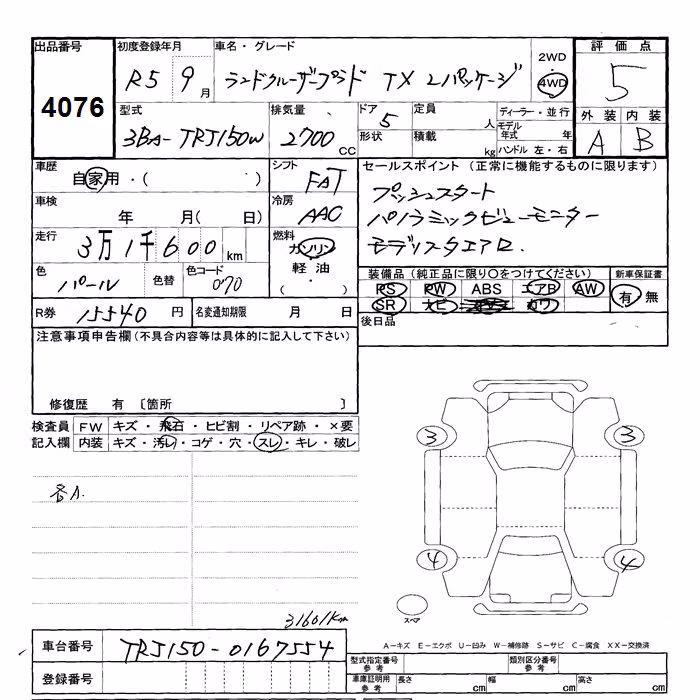 出品番号
4076
初度登録年月
R5 9月
車名・グレード
ランドクルーザープラド TX Lパッケージ
2WD
4WD
評価点
5
外装 内装
A B
型式
3BA-TRJ150W
排気量
2700 CC
ドア
5
形状
定員
人
積載
kg
ディーラー・並行
モデル年式 年
ハンドル 左・右
車歴
自家用・( )
シフト
FAT
車検
年 月( 日)
冷房
AAC
走行
3万1千600 km
燃料
ガソリン
軽油
( ・ )
色
パール
色替
色コード
070
R券 15540 円
名変通知期限 月 日
セールスポイント (正常に機能するものに限ります)
プッシュスタート
パノラミックビューモニター
モデリスタエアロ.
装備品 (純正品に限り○をつけてください)
PS PW ABS エアB AW
SR ナビ カワ
新車保証書
有 無
後日品
注意事項申告欄 (不具合内容等は具体的に記入して下さい)
修復歴 有 〔箇所 〕
検査員記入欄
FW キズ・飛石・ヒビ割・リペア跡・×要
内装 キズ・汚レ・コゲ・穴・スレ・キレ・破レ
各A.
31601Km
3 3
4 4
スペア
車台番号 TRJ150-0167554
登録番号
A-キズ E-エクボ U-凹み W-補修跡 S-サビ C-腐食 XX-交換済
型式指定番号 参考
類別区分番号 参考
車庫証明用 参考
長さ cm 幅 cm 高さ cm